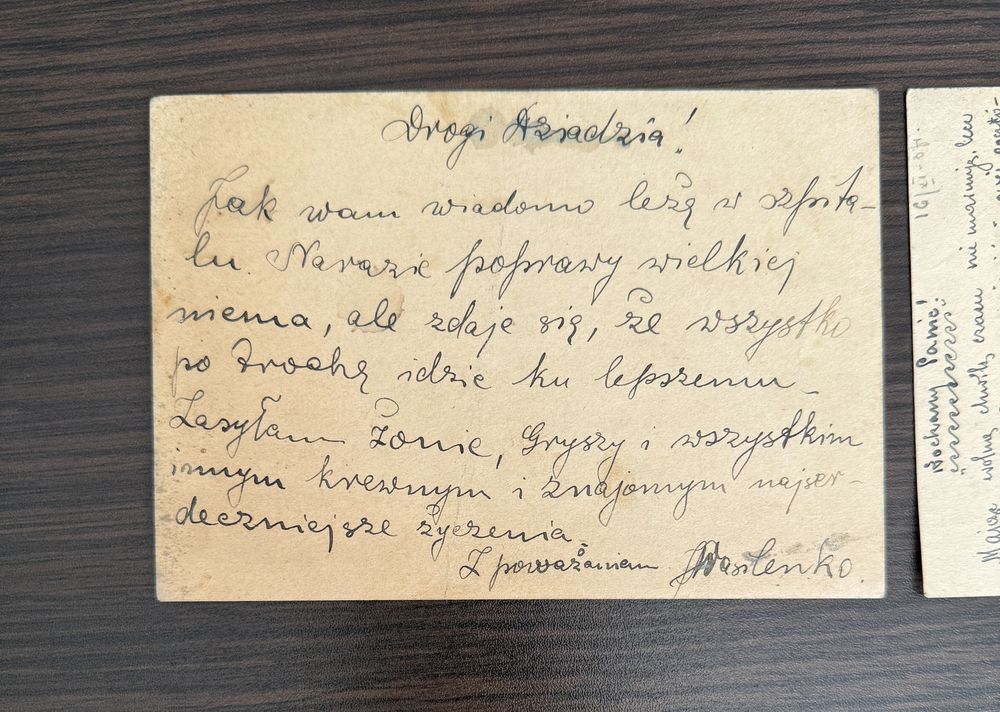 Drogi Dziadzia!
Jak wam wiadomo leżę w szpita-
lu. Narazie poprawy wielkiej
niema, ale zdaje się, że wszystko
po trochę idzie ku lepszemu
Zasyłam Żonie, Gryszy i wszystkim
innym krewnym i znajomym najser-
deczniejsze życzenia.
Z poważaniem JWasilenko.
Kochany Panie!
Mając wolną chwilę czasu nie